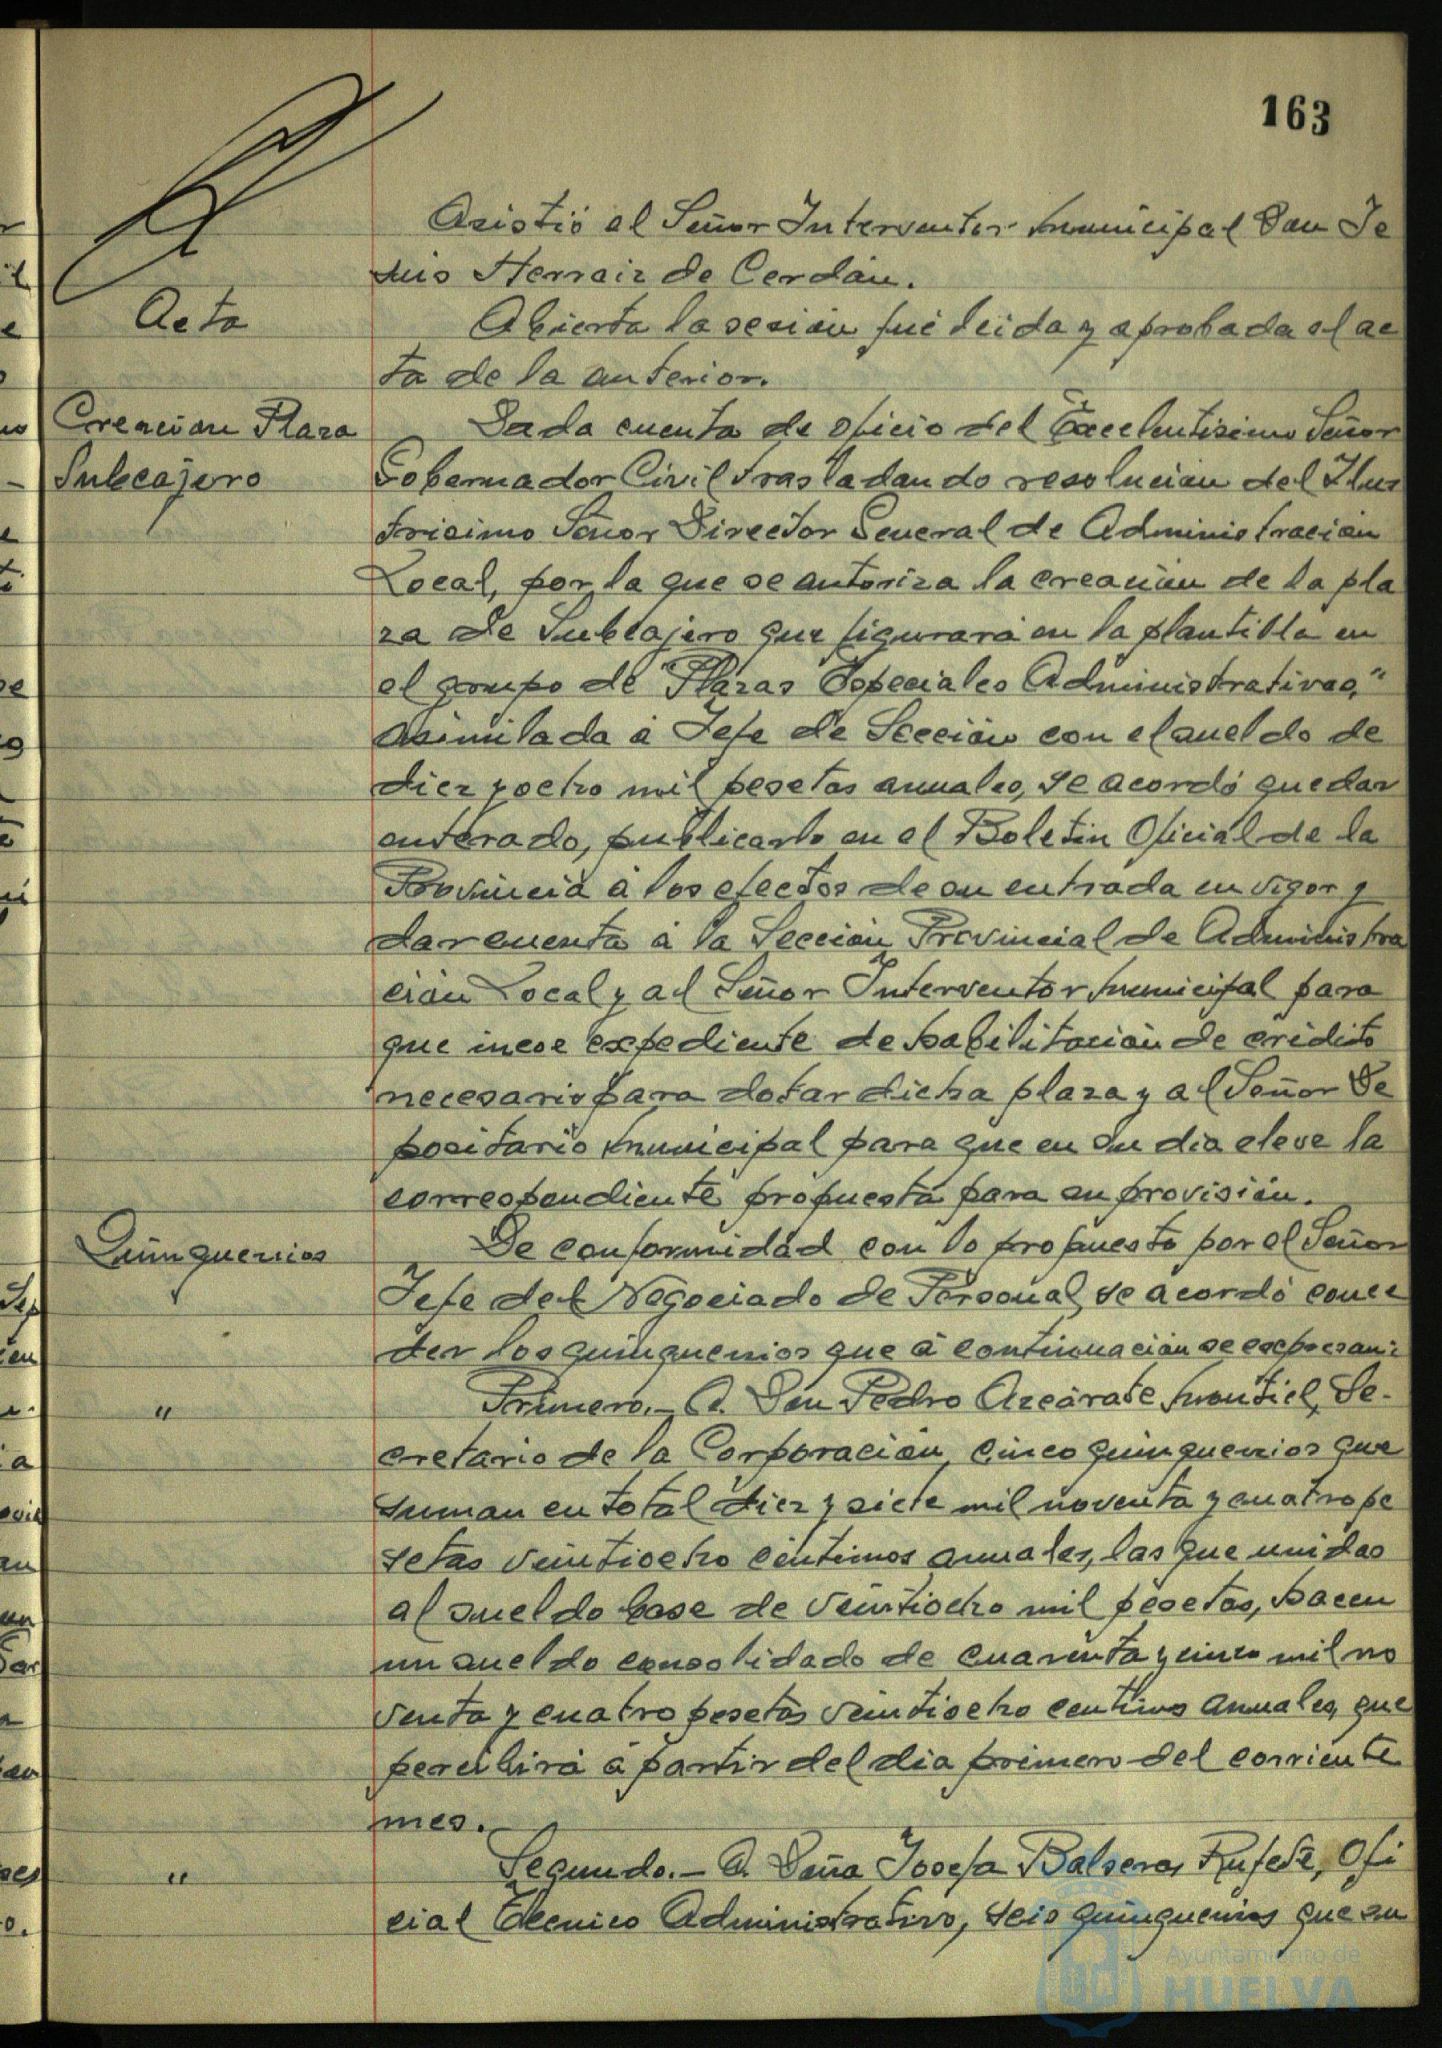 163
Asistió el Señor Interventor municipal Don Je
sus Herraiz de Cerdán.
Acta
Abierta la sesión fué leida y aprobada el ac
ta de la anterior.
Creación Plaza
Subcajero
Dada cuenta de oficio del Excelentisimo Señor
Gobernador Civil trasladando resolución del Ilus
trisimo Señor Director General de Administración
Local, por la que se autoriza la creación de la pla
za de Subcajero que figurará en la plantilla en
el grupo de "Plazas Especiales Administrativas,"
asimilada á Jefe de Sección con el sueldo de
diez y ocho mil pesetas anuales, se acordó quedar
enterado, publicarlo en el Boletin Oficial de la
Provincia á los efectos de su entrada en vigor y
dar cuenta á la Sección Provincial de Administra
ción Local y al Señor Interventor municipal para
que incoe expediente de habilitación de crédito
necesario para dotar dicha plaza y al Señor De
positario municipal para que en su dia eleve la
correspondiente propuesta para su provisión.
Quinquenios
De conformidad con lo propuesto por el Señor
Jefe del Negociado de Personal, se acordó conce
der los quinquenios que á continuación se expresan:
"
Primero.- A. Don Pedro Azcárate Montiel, Se-
cretario de la Corporación, cinco quinquenios que
suman en total diez y siete mil noventa y cuatro pe
setas veintiocho céntimos anuales, las que unidas
al sueldo base de veintiocho mil pesetas, hacen
un sueldo consolidado de cuarenta y cinco mil no
venta y cuatro pesetas veintiocho centimos anuales, que
percibirá á partir del dia primero del corriente
mes.
"
Segundo.- A. Doña Josefa Balsera Rufete, Ofi
cial Técnico Administrativo, seis quinquenios que su
Ayuntamiento de
HUELVA